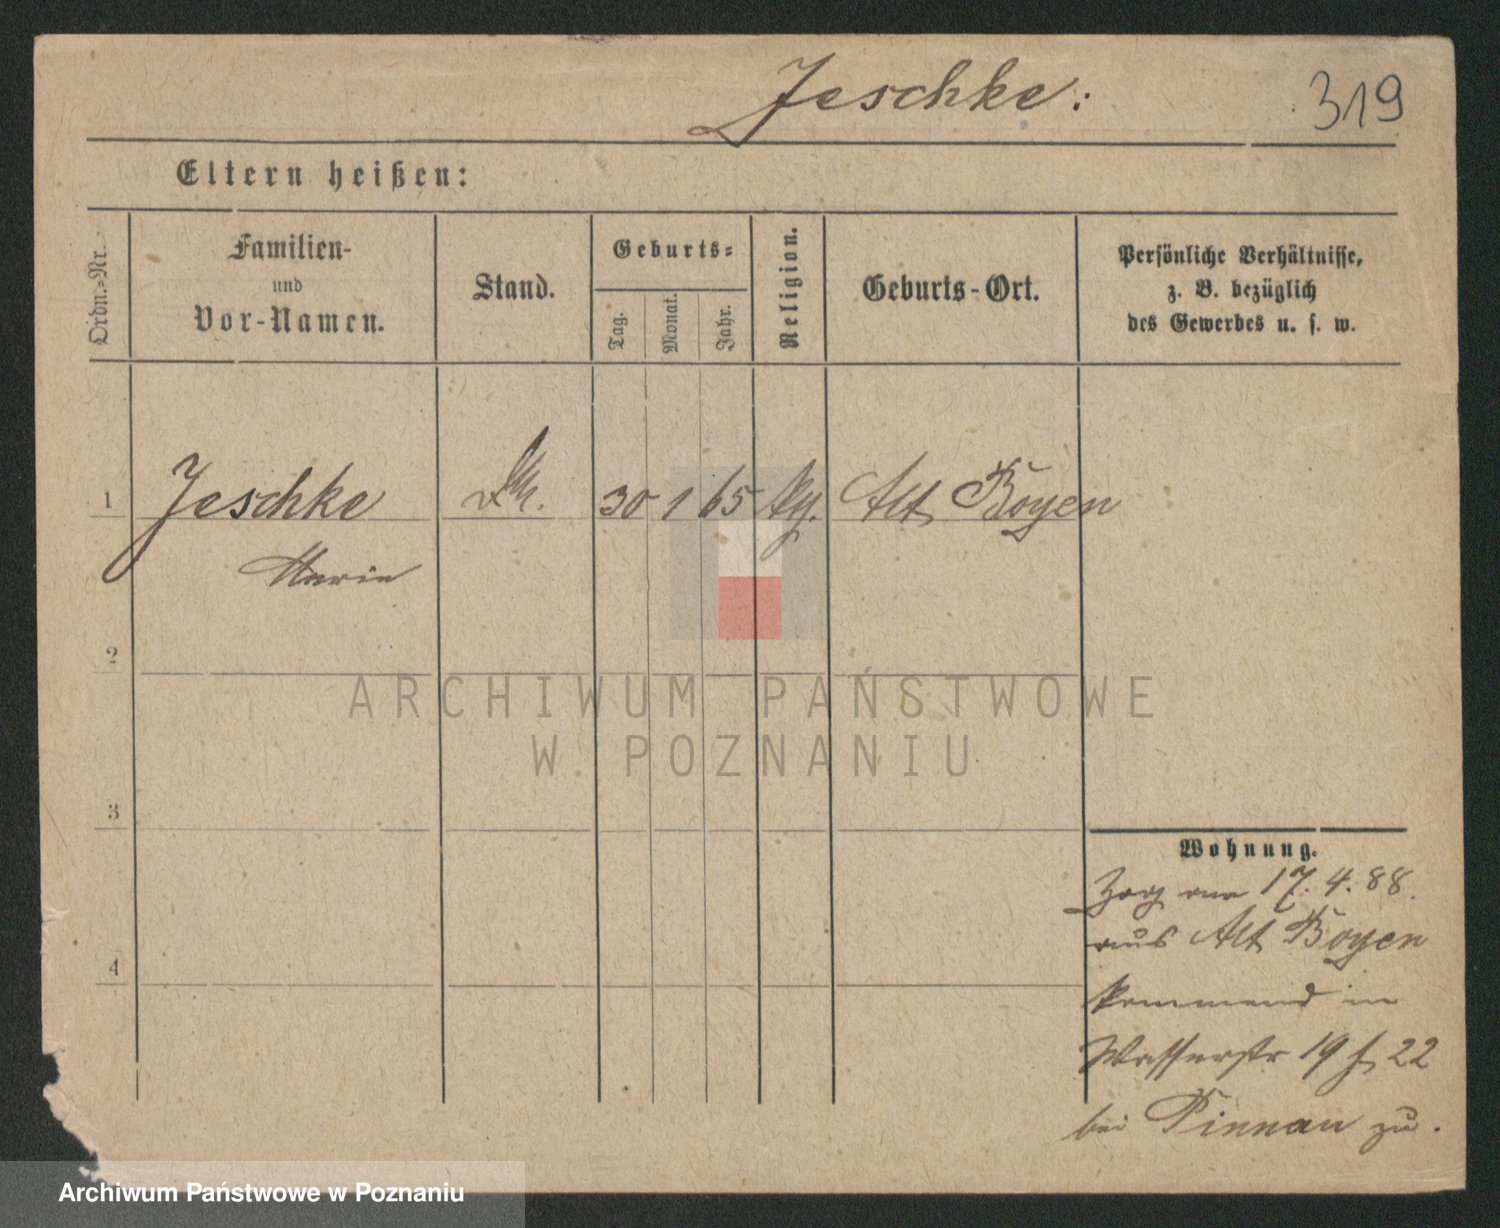 Jeschke:
319
Eltern heißen:
Ordn.-Nr.
Familien-
und
Vor-Namen.
Stand.
Geburts=
Tag.
Monat.
Jahr.
Religion.
Geburts-Ort.
Persönliche Verhältnisse,
z. B. bezüglich
des Gewerbes u. s. w.
1
Jeschke
30 1 65
Alt Boyen
Marie
2
3
4
ARCHIWUM PAŃSTWOWE
W POZNANIU
Wohnung.
Zog am 17. 4. 88.
aus Alt Boyen
kommend in
Wasserstr 19 22
bei Pinnau zu.
Archiwum Państwowe w Poznaniu